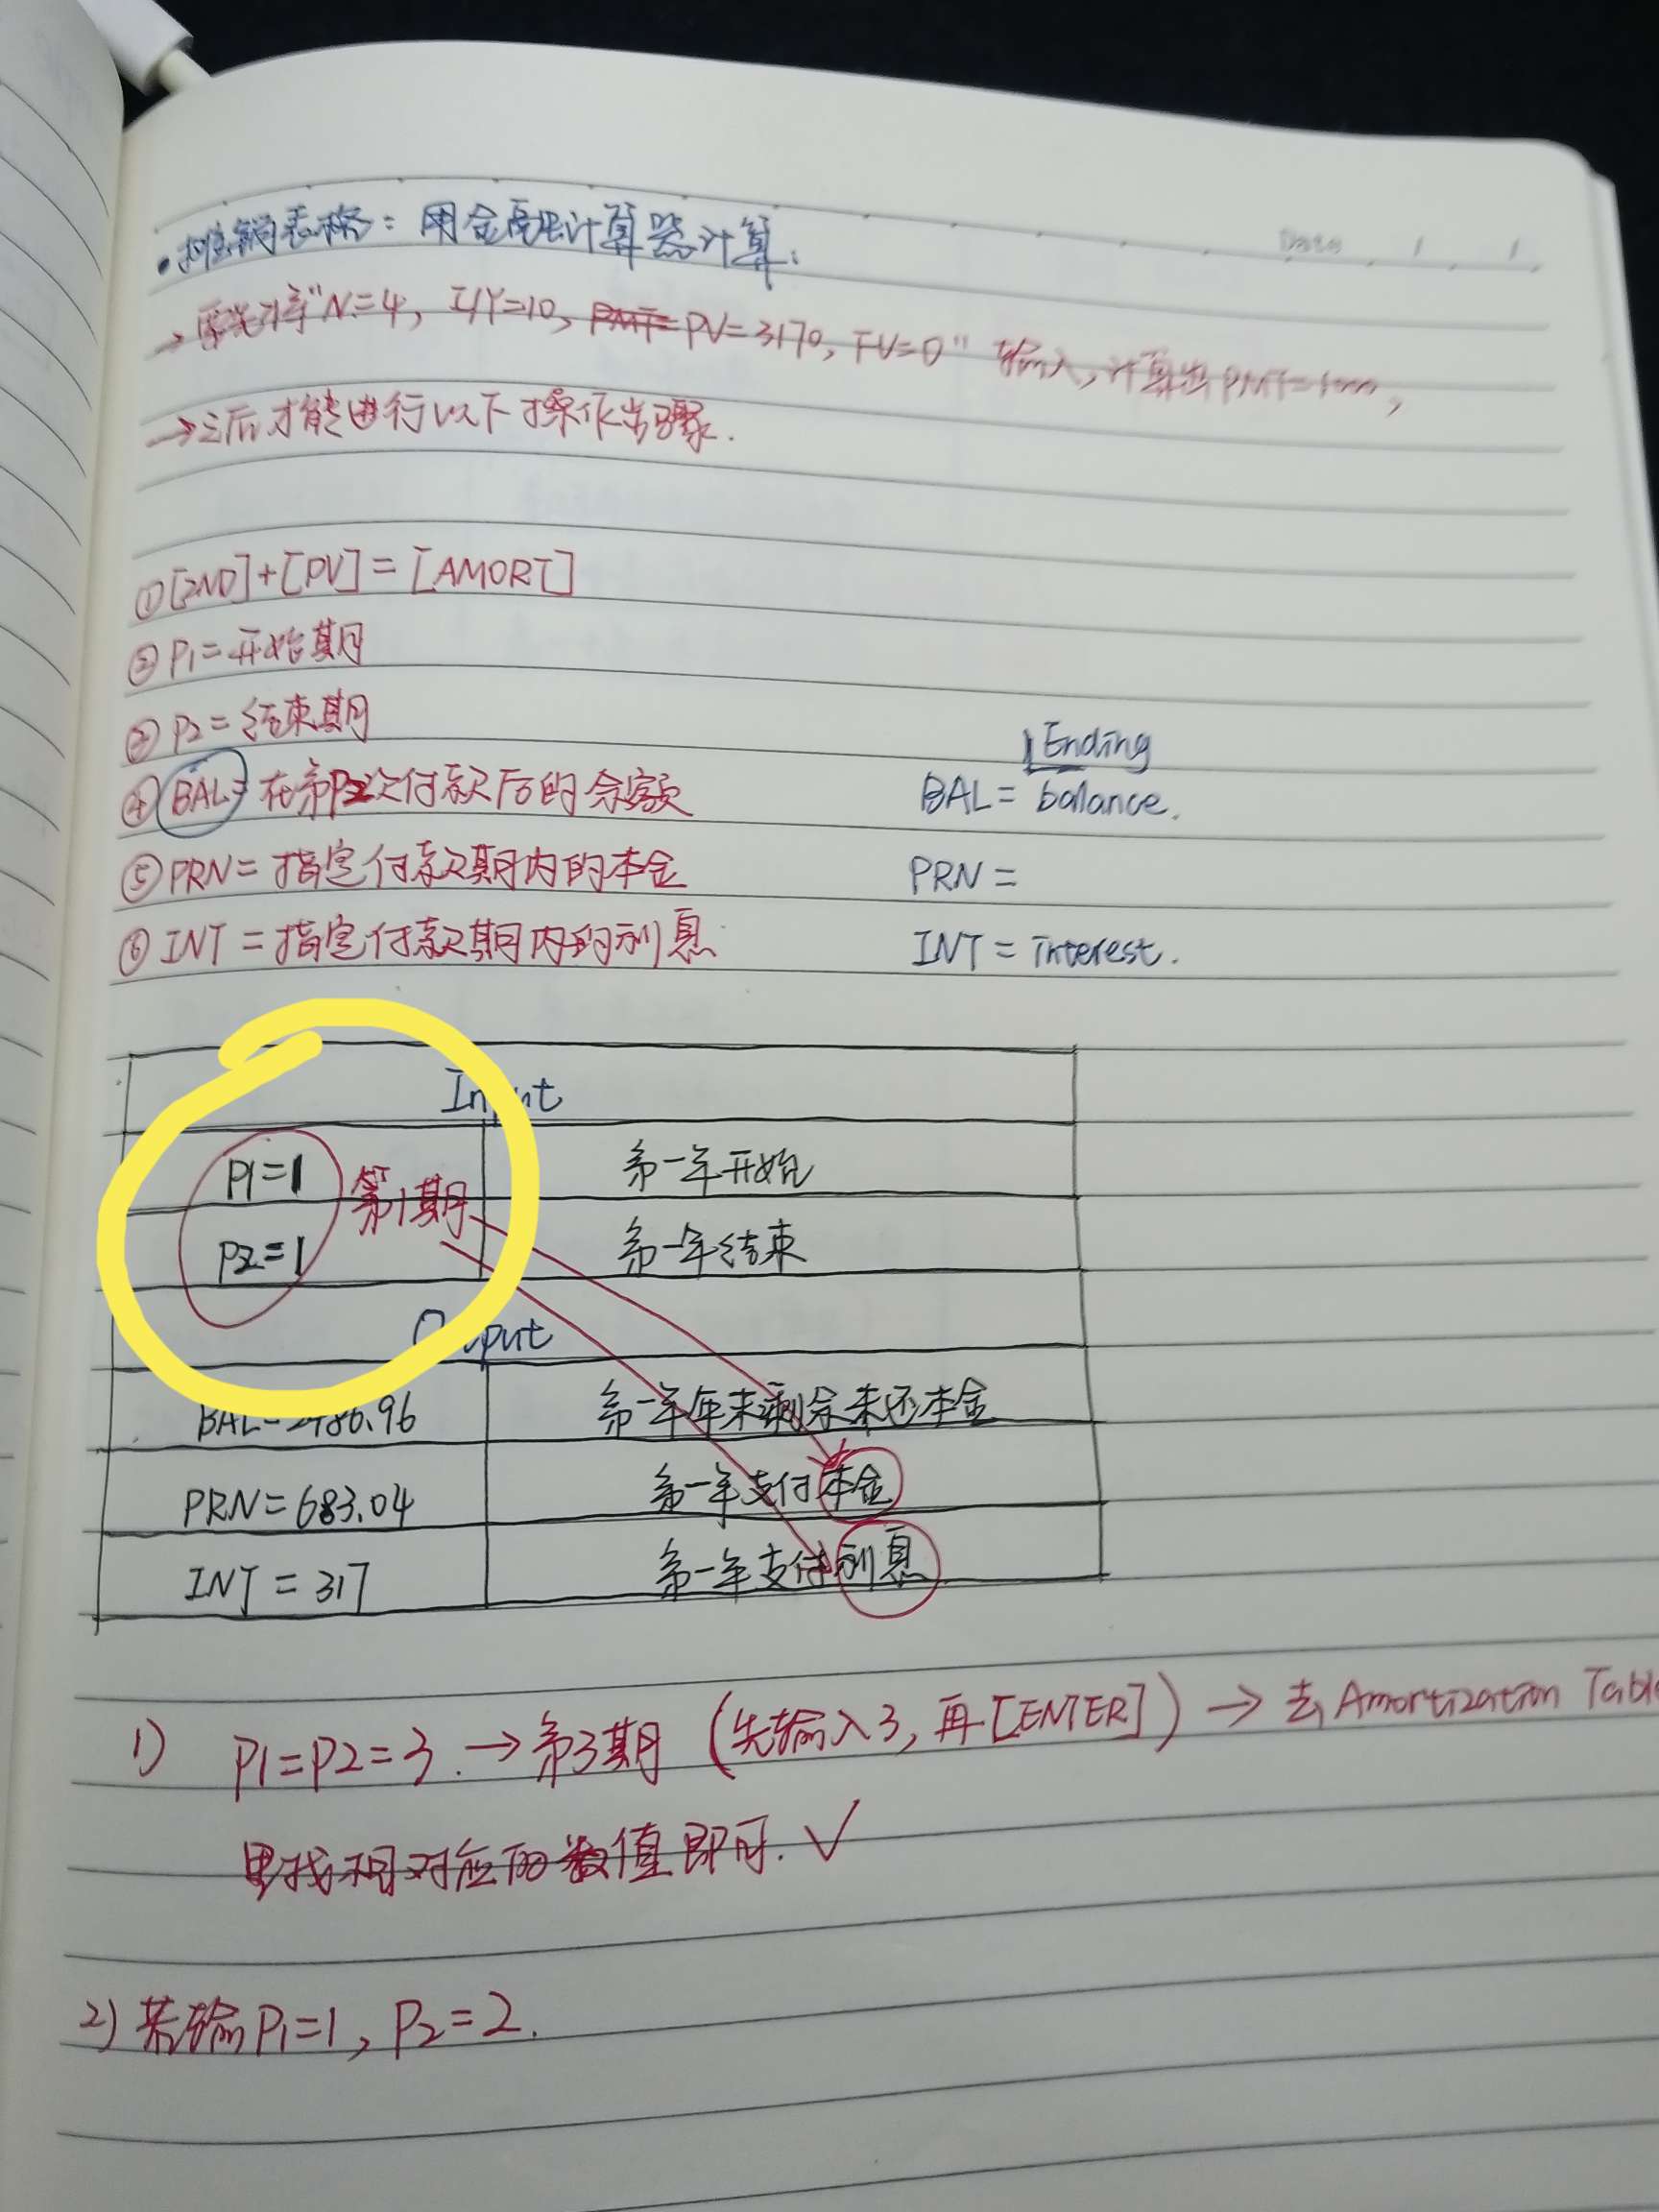 •摊销表格：用金融计算器计算：
Date / /
→要先将"N=4, I/Y=10, PV=3170, FV=0" 输入,计算出PMT=1000,
→之后才能进行以下操作步骤.
①[2ND]+[PV]=[AMORT]
②P1=开始期
③P2=结束期
④BAL=在第P2次付款后的余额
Ending
BAL= balance.
⑤PRN=指定付款期内的本金
PRN=
⑥INT=指定付款期内的利息
INT=interest.
Input
P1=1
第一年开始
第1期
P2=1
第一年结束
Output
BAL=2486.96
第一年年末剩余未还本金
PRN=683.04
第一年支付本金
INT=317
第一年支付利息
1) P1=P2=3.→第3期 (先输入3,再[ENTER])→去Amortization Table
里找相对应的数值即可.✓
2)若输P1=1, P2=2.